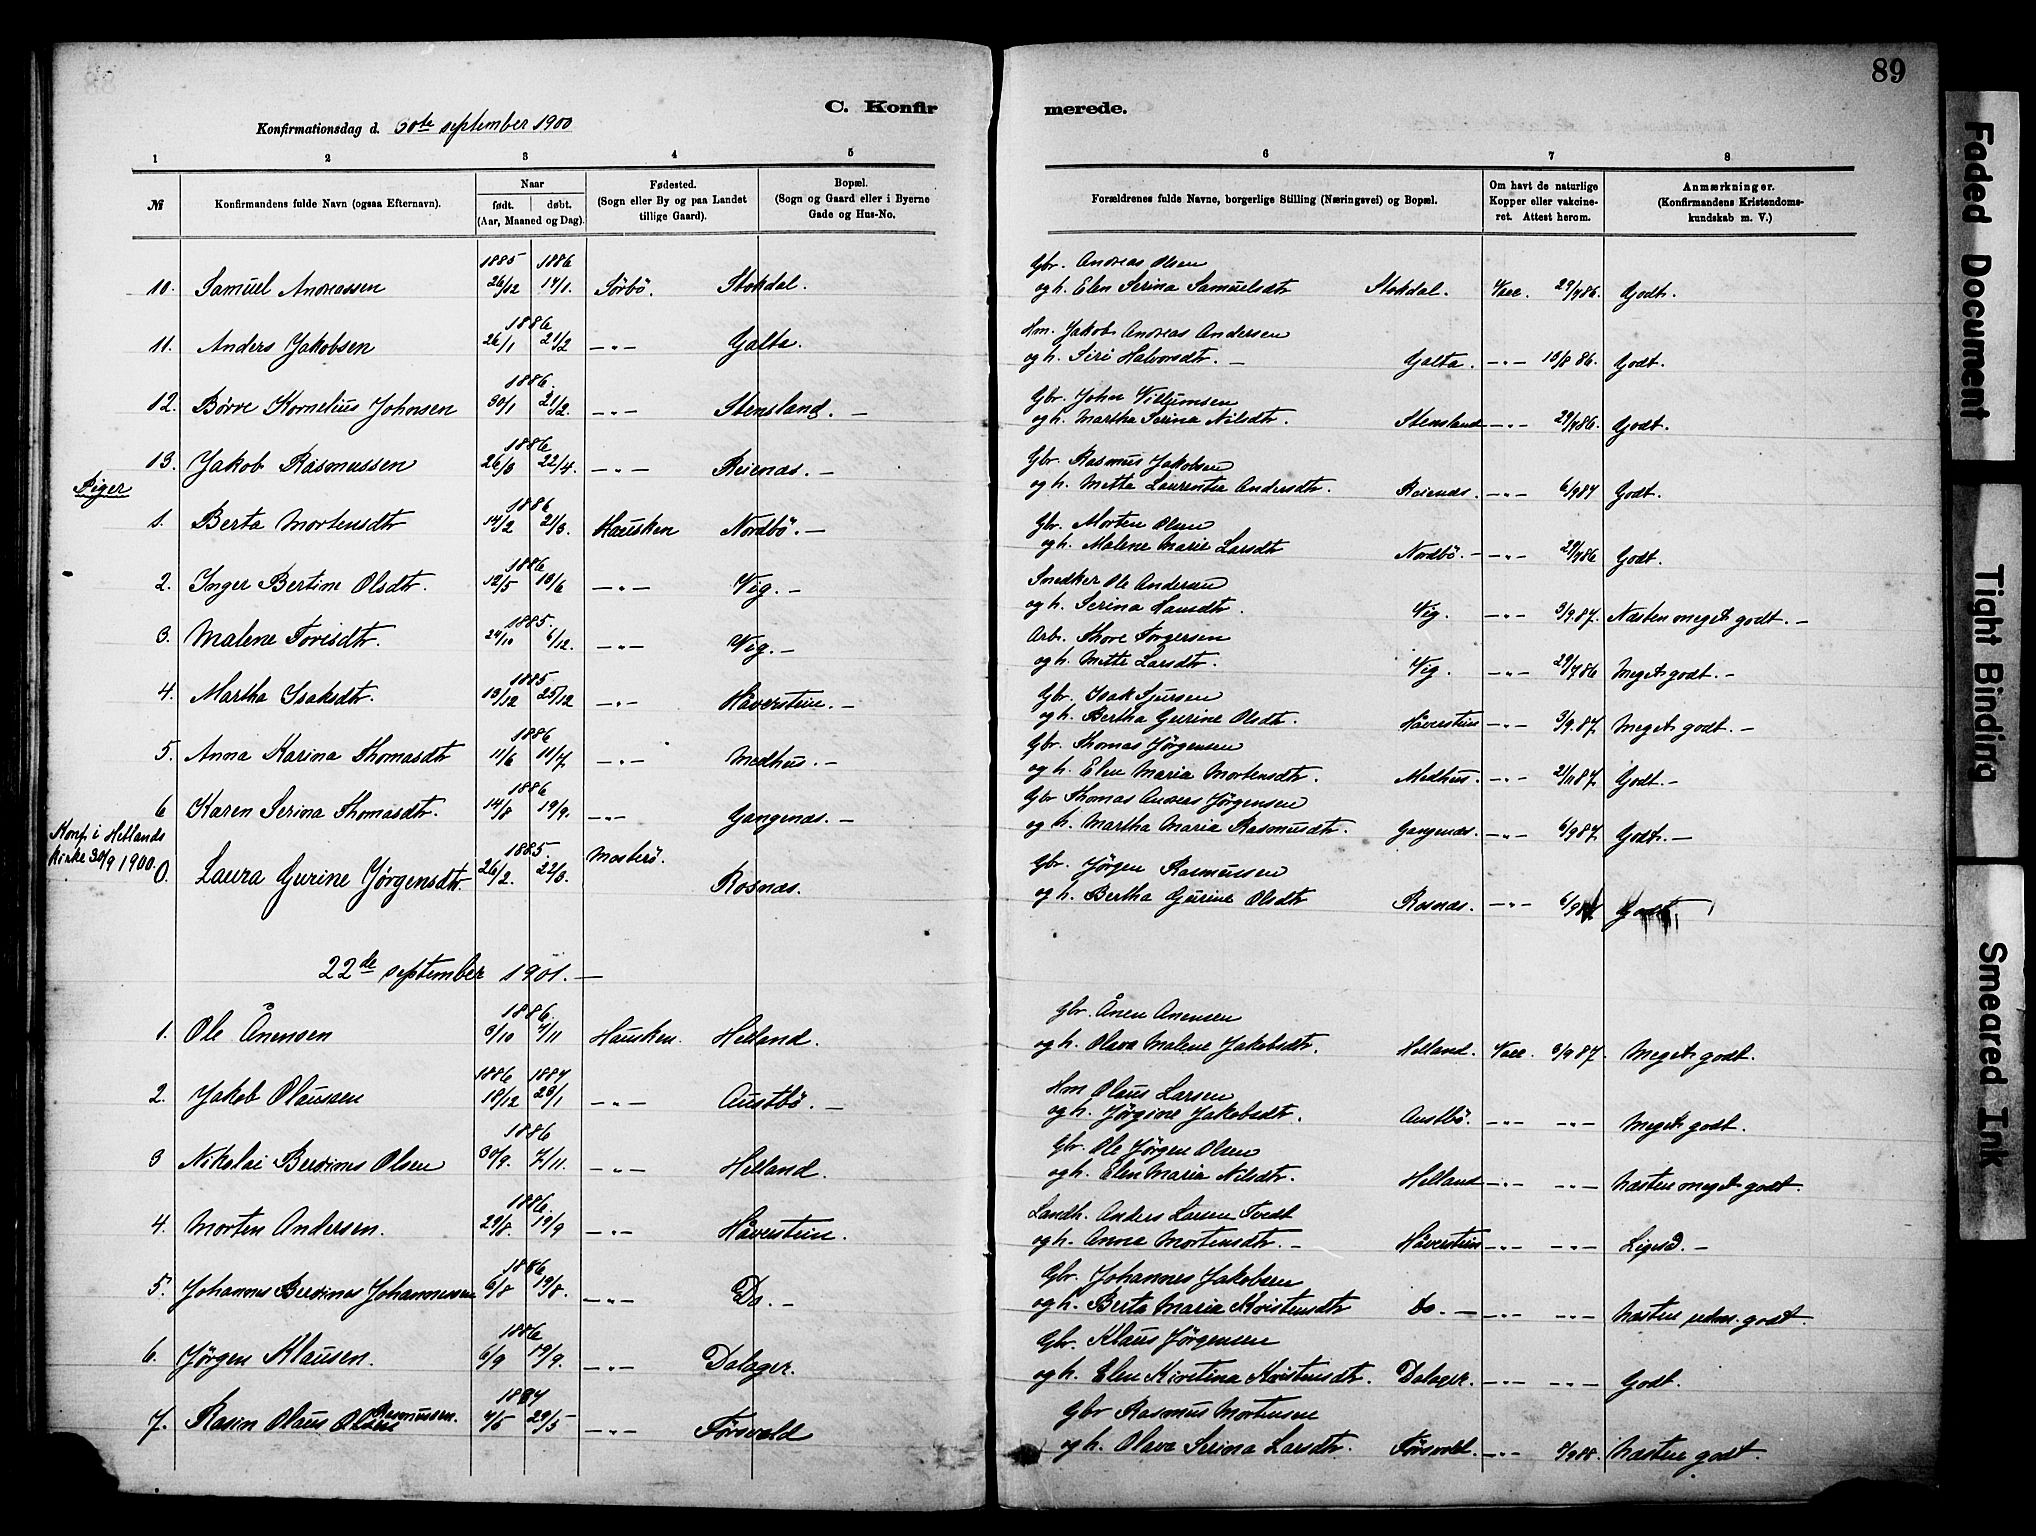 89
C. Konfir merede.
Konfirmationsdag d. 30te september 1900
1 2 3 4 5 6 7 8
№ Konfirmandens fulde Navn (ogsaa Efternavn). Naar født. døbt. (Aar, Maaned og Dag). Fødested. (Sogn eller By og paa Landet tillige Gaard). Bopæl. (Sogn og Gaard eller i Byerne Gade og Hus-No. Forældrenes fulde Navne, borgerlige Stilling (Næringsvei) og Bopæl. Om havt de naturlige Kopper eller vakcineret. Attest herom. Anmærkninger. (Konfirmandens Kristendomskundskab m. V.)
1885 1886 Gbr. Andreas Olsen
10. Samuel Andreassen 26/12 17/1. Sørbö. Stokdal. og h. Elen Serina Samuelsdtr Stokdal. Vacc. 29/786. Godt.
1886 Hm. Jakob Andreas Andersen
11. Anders Jakobsen 26/1 21/2 -"- Galta. og h. Siri Halvorsdtr. - Galta. -"- 18/8 86. Godt.
1886. Gbr. John Villumsen
12. Börre Kornelius Johnsen 30/1 21/2. -"- Stensland. - og h. Martha Serina Nilsdtr. Stensland -"- 29/786. Godt.
1886 Gbr. Rasmus Jakobsen
13. Jakob Rasmussen 26/3 22/4. -"- Reienæs. - og h. Mette Laurentia Andersdtr. Reienæs. -"- 6/987 Godt.
Piger
1886 Gbr. Morten Olsen
1. Berta Mortensdtr 14/2 21/3. Hausken Nordbö. - og h. Malene Marie Larsdtr Nordbö. - -"- 29/786 Godt.
1886 Snedker Ole Andersen
2. Inger Bertine Olsdtr. 12/5 13/6 -"- Vig. - og h. Serina Hansdtr. Vig. -"- 3/9.87. Næsten meget godt. -
1885. Arb. Thore Torgersen
3. Malene Toresdtr. 24/10 6/12. -"- Vig. - og h. Mette Larsdtr. Vig. -"- 29/786 Meget godt. -
1885. Gbr. Isak Sjursen
4. Martha Isaksdtr. 13/12 25/12 -"- Håverstein. - og h. Bertha Gurine Olsdtr. Håverstein -"- 3/9.87. Meget godt. -
1886 Gbr. Thomas Jørgensen
5. Anna Karina Thomasdtr 11/6 11/7 -"- Medhus. - og h. Elen Maria Mortensdtr. Medhus. -"- Godt. -
1886 Gbr Thomas Andreas Jørgensen
6 Karen Serina Thomasdtr. 14/8 19/9. -"- Gangenæs. - og h. Martha Maria Rasmusdtr. Gangenæs. -"- 6/987. Godt. -
Konf. i Hetlands Kirke 30/9 1900.
1885. Gbr. Jørgen Rasmussen
0. Laura Gurine Jørgensdtr. 26/2. 22/3. Mosterö. Rosnæs. og h. Bertha Gurine Olsdtr Rosnæs. -"- Godt.
22de september 1901. -
1886. Gbr. Ånen Anensen
1. Ole Ånensen 3/10 7/11 Hausken. Helland. og h. Olava Malene Jakobsdtr. Helland. Vacc. 3/9 87. Meget godt.
1886 1887 Hm Olaus Larsen
2. Jakob Olaussen 18/12 23/1 -"- Austbö. - og h. Jørgine Jakobsdtr. Austbö. -"- -"- Meget godt.
1886 Gbr. Ole Jørgen Olsen
3 Nikolai Berdines Olsen 30/9. 7/11. -"- Helland. og h. Elen Maria Nilsdtr. Helland -"- -"- Næsten meget godt.
1886. Landh. Anders Larsen Tvedt
4. Morten Andersen. 29/8. 19/9 -"- Håverstein. og h. Anna Mortensdtr. - Håverstein -"- -"- Ligesd. -
1886 Gbr. Johannes Jakobsen
5. Johannes Berdines Johannessen 6/8 19/8. -"- Do. - og h. Berta Maria Kristensdtr Do. - -"- -"- Næsten udm. godt
1886 Gbr. Klaus Jørgensen
6. Jørgen Klausen. 6/9 19/9. -"- Dalager. og h. Elen Kirstina Kristensdtr. Dalager. -"- -"- Godt.
1887 Gbr Rasmus Mortensen
7. Rasin Olaus Rasmussen. 29/5 -"- Førsvold og h. Olava Serina Larsdtr. Førsvold. -"- Næsten godt.
Faded Document
Tight Binding
Smeared Ink